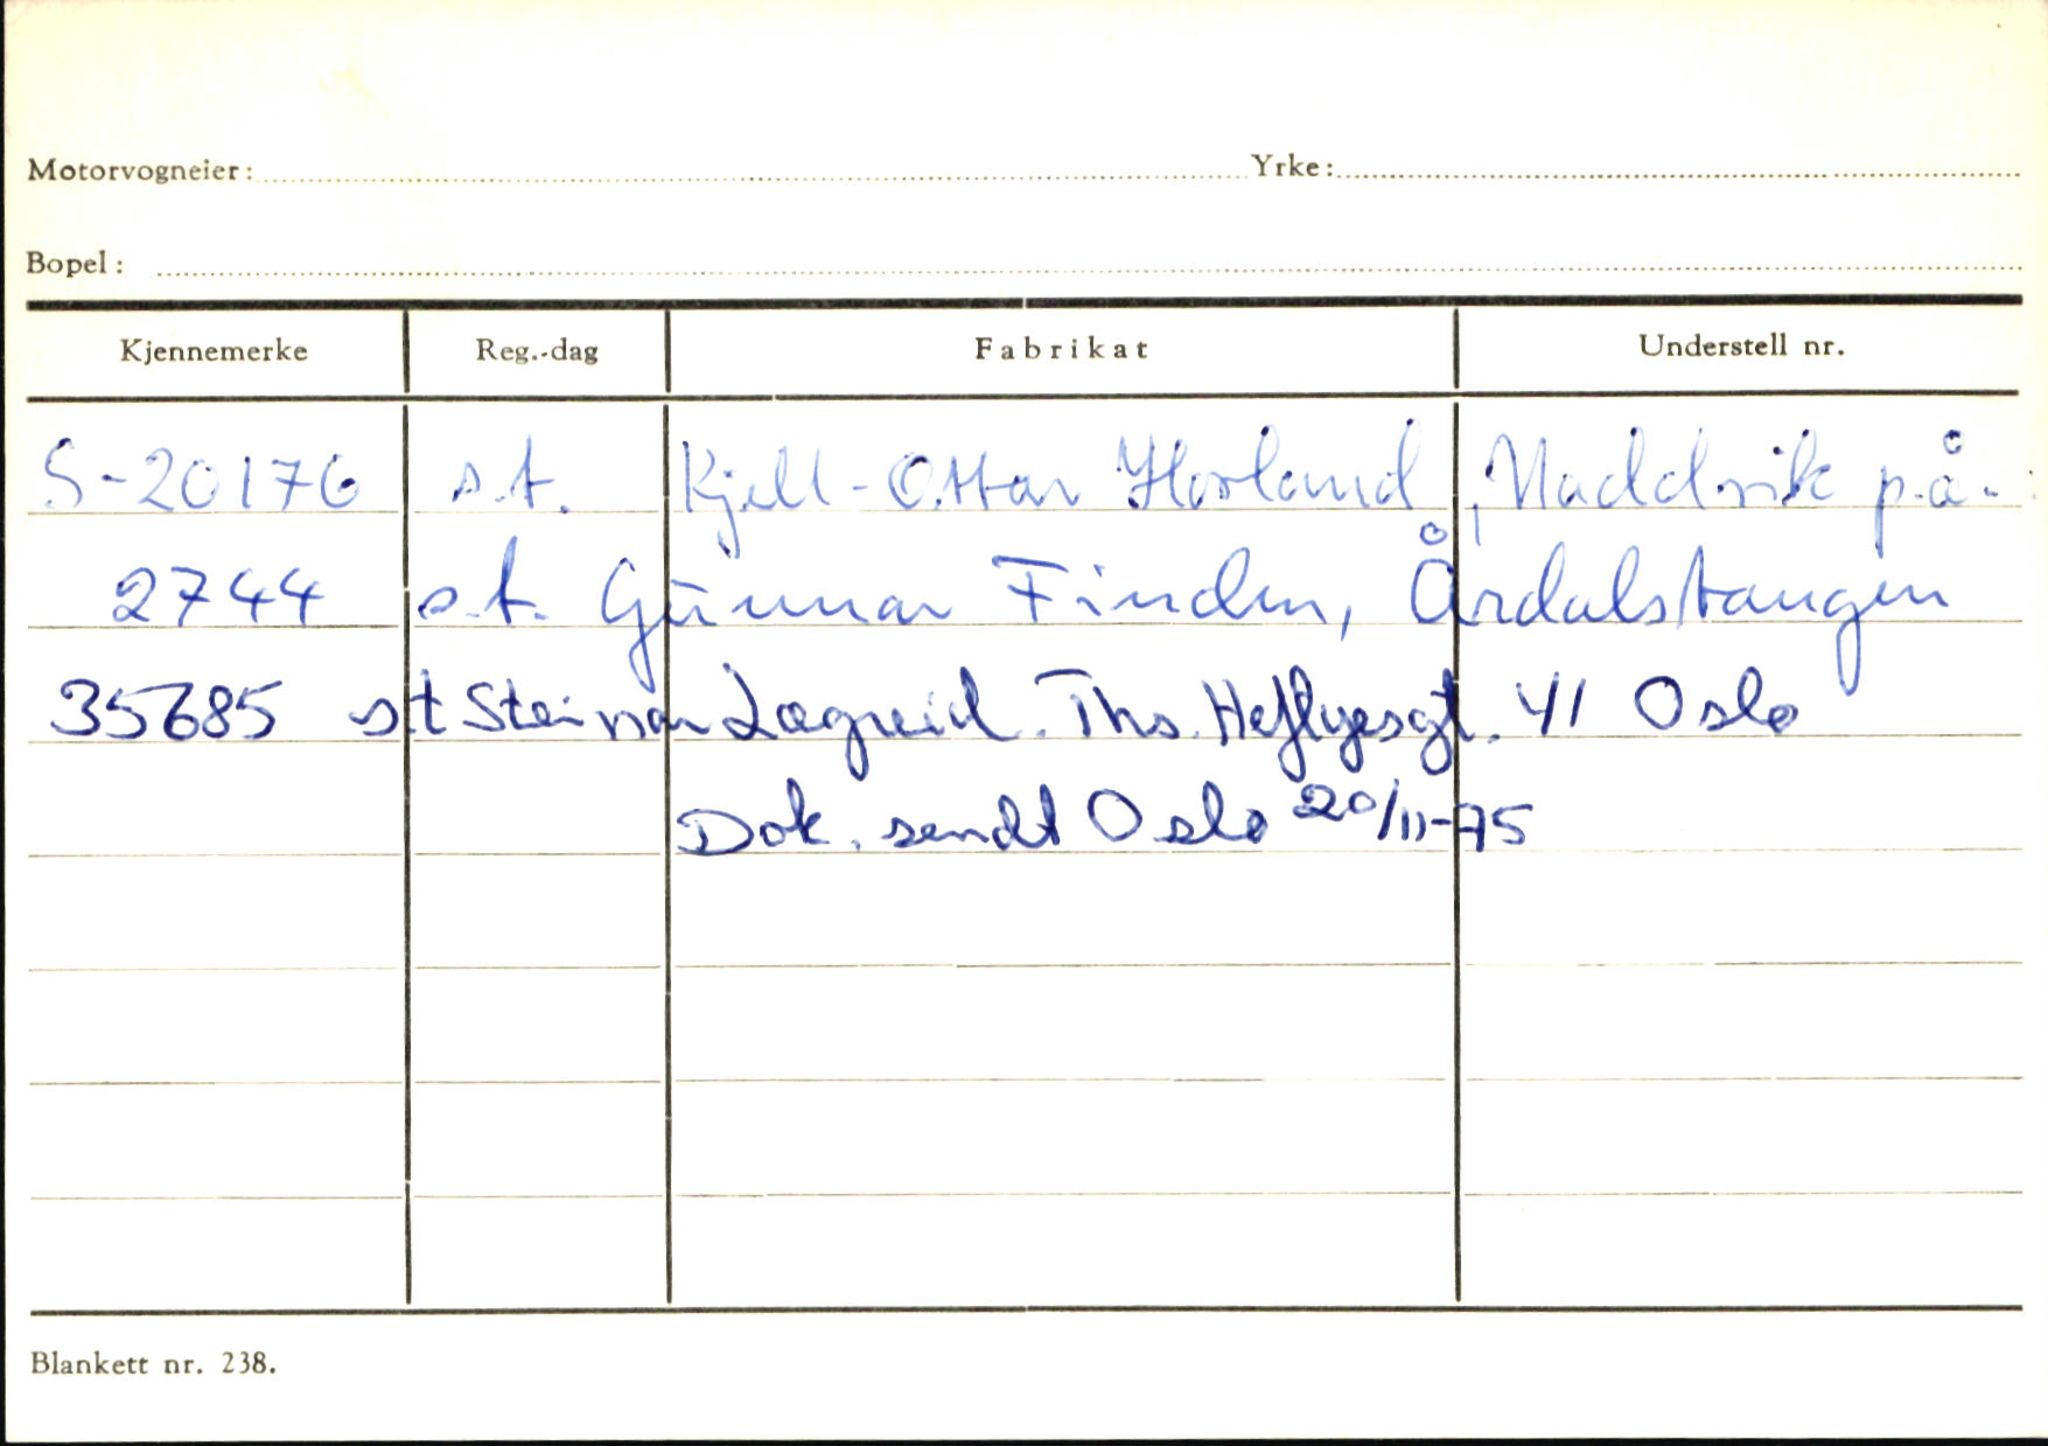 Motorvogneier: Yrke:
Bopel:
Kjennemerke Reg.-dag Fabrikat Understell nr.
S-20176 s.t. Kjell-Ottar Horland, Naddvik p.å.
2744 s.t. Gunnar Finden, Årdalstangen
35685 st Steinar Lægreid. Ths. Heftyesgt. 41 Oslo
Dok. sendt Oslo 20/11-75
Blankett nr. 238.